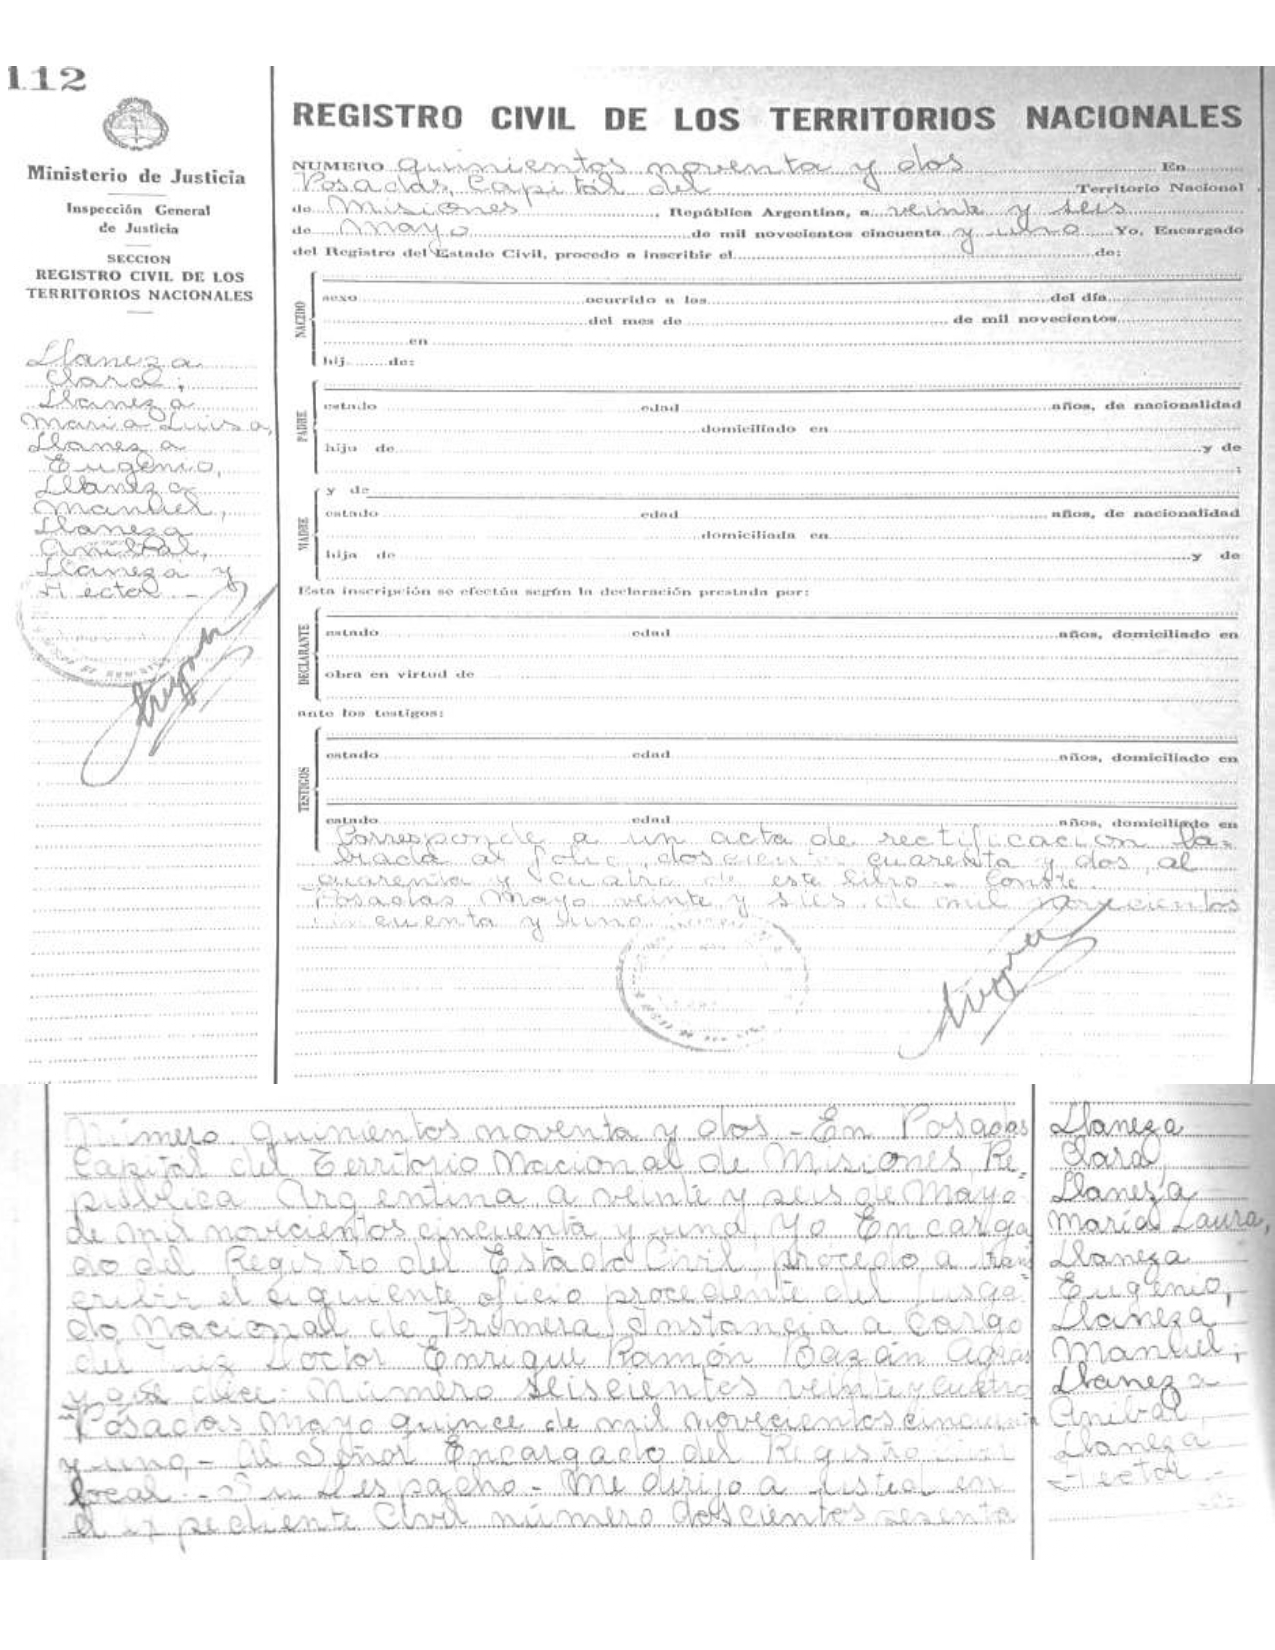 112
Ministerio de Justicia
Inspección General
de Justicia
SECCION
REGISTRO CIVIL DE LOS
TERRITORIOS NACIONALES
Llaneza
Clara,
Llaneza
Maria Luisa,
Llaneza
Eugenio,
Llaneza
Manuel,
Llaneza
Anibal,
Llaneza y
Hector -
REGISTRO CIVIL DE LOS TERRITORIOS NACIONALES
NUMERO quinientos noventa y dos En
Posadas, Capital del Territorio Nacional
de Misiones, República Argentina, a veinte y seis
de Mayo de mil novecientos cincuenta y uno Yo, Encargado
del Registro del Estado Civil, procedo a inscribir el de:
NACIDO
sexo ocurrido a los del día
del mes de de mil novecientos
en
hij de:
PADRE
estado edad años, de nacionalidad
domiciliado en
hijo de y de
;
MADRE
y de
estado edad años, de nacionalidad
domiciliada en
hija de y de
Esta inscripción se efectúa según la declaración prestada por:
DECLARANTE
estado edad años, domiciliado en
obra en virtud de
ante los testigos:
TESTIGOS
estado edad años, domiciliado en
estado edad años, domiciliado en
Corresponde a un acta de rectificación la-
brada al folio doscientos cuarenta y dos, al
cuarenta y cuatro de este libro - Conste.
Posadas Mayo veinte y seis de mil novecientos
cincuenta y uno
Número quinientos noventa y dos - En Posadas
Capital del Territorio Nacional de Misiones Re-
pública Argentina a veinte y seis de Mayo
de mil novecientos cincuenta y uno, yo Encarga
do del Registro del Estado Civil procedo a trans
cribir el siguiente oficio procedente del Juzga
do Nacional de Primera Instancia a Cargo
del Juez Doctor Enrique Ramón Bazán Agras
y que dice: Número seiscientos veinte y cuatro
"Posadas Mayo quince de mil novecientos cincuenta
y uno, - Al Señor Encargado del Registro Civil
local - Su Despacho - Me dirijo a Usted en
el expediente Civil número doscientos sesenta
Llaneza
Clara,
Llaneza
María Laura,
Llaneza
Eugenio,
Llaneza
Manuel,
Llaneza
Anibal,
Llaneza
Hector -